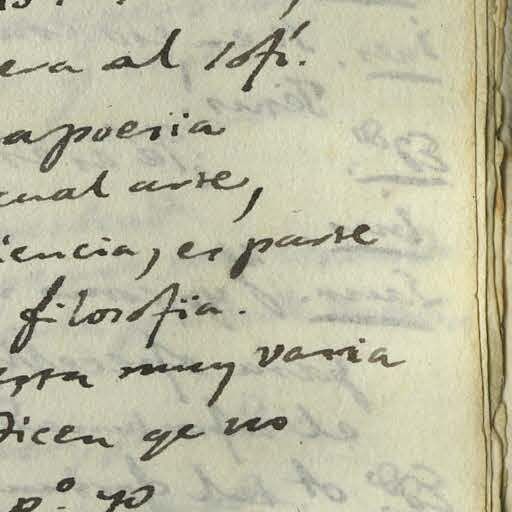 era al sofí.
a poesïa
cual arte,
iencia, es parte
filosofïa.
esta muy varia
Dicen qe no
p.º yo